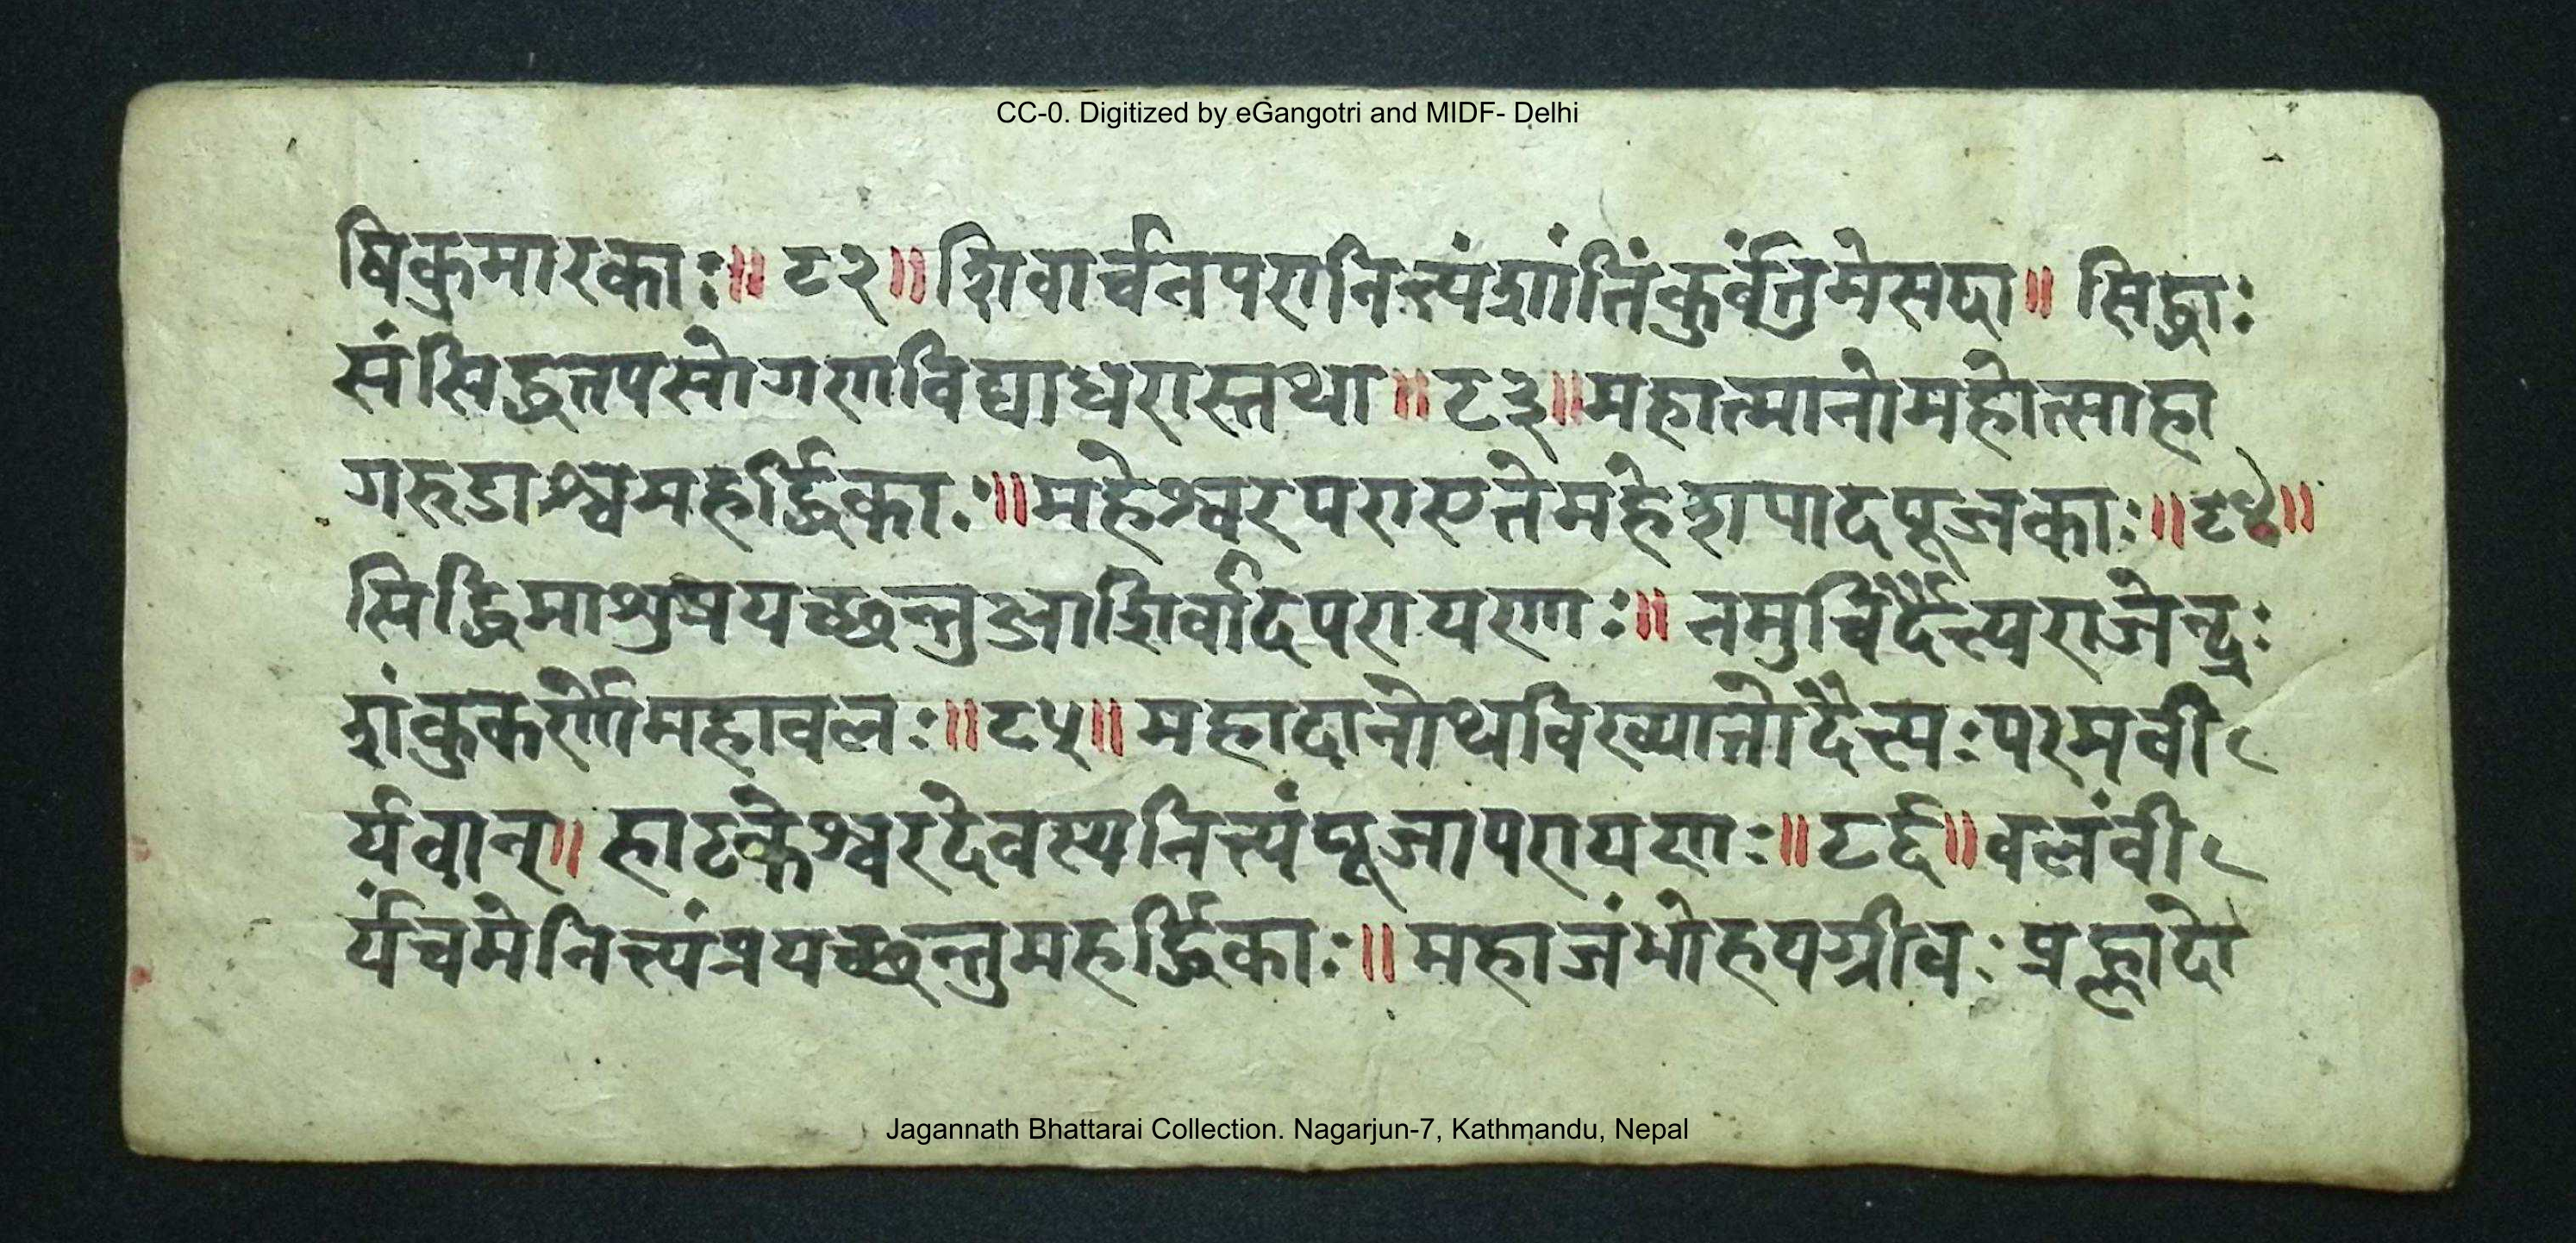 CC-0. Digitized by eGangotri and MIDF- Delhi
षिकुमारकाः॥ ८२॥ शिवार्च्चनपरानित्यंशांतिंकुर्वंतुमेसदा॥ सिद्धाः
संसिद्धतपसोगणविद्याधरास्तथा॥ ८३॥ महात्मानोमहोत्साहा
गरुडाश्चमहर्द्धिकाः॥ महेश्वरपराएतेमहेशपादपूजकाः॥ ८४॥
सिद्धिमाशुप्रयच्छन्तुआशिर्वादपरायणाः॥ नमुचिर्दैत्यराजेन्द्रः
शंकुकर्णोमहावलः॥ ८५॥ महादानोथविख्यातोदैत्यःपरमवी
र्यवान्॥ हाटकेश्वरदेवस्यनित्यंपूजापरायणः॥ ८६॥ वलंवी
र्यंचमेनित्यंप्रयच्छन्तुमहर्द्धिकाः॥ महाजंभोहयग्रीवः प्रह्लादो
Jagannath Bhattarai Collection. Nagarjun-7, Kathmandu, Nepal